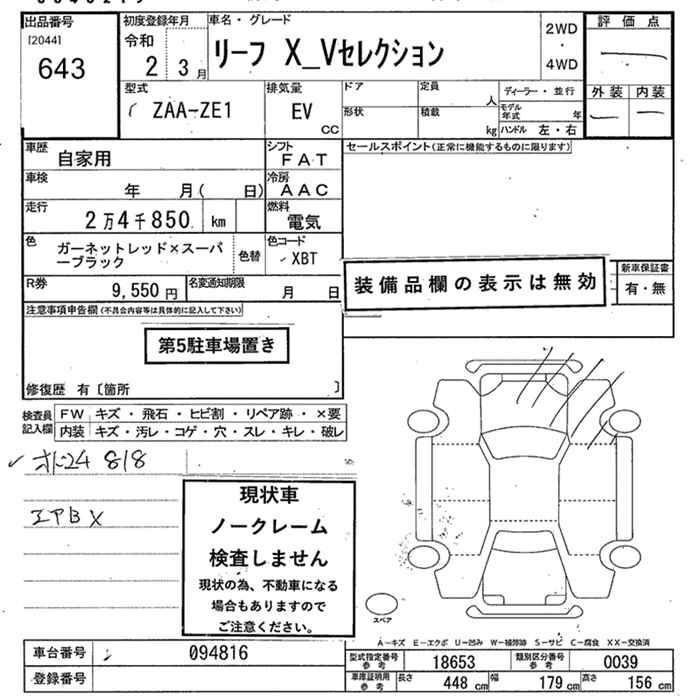 出品番号
[2044]
643
初度登録年月
令和
2 3月
車名・グレード
リーフ X_Vセレクション
2WD
・
4WD
評価点
外装 内装
型式
ZAA-ZE1
排気量
EV
cc
ドア
定員
人
形状
積載
kg
ディーラー・並行
モデル年式 年
ハンドル 左・右
車歴
自家用
シフト
FAT
セールスポイント(正常に機能するものに限ります)
車検
年 月( 日)
冷房
AAC
走行
2万4千850 km
燃料
電気
色
ガーネットレッド×スーパーブラック
色替
色コード
XBT
装備品欄の表示は無効
新車保証書
有・無
R券
9,550 円
名変通知期限
月 日
注意事項申告欄(不具合内容等は具体的に記入して下さい)
第5駐車場置き
修復歴 有〔箇所 〕
検査員記入欄
FW キズ・飛石・ヒビ割・リペア跡・×要
内装 キズ・汚レ・コゲ・穴・スレ・キレ・破レ
818
エアB X
現状車
ノークレーム
検査しません
現状の為、不動車になる
場合もありますので
ご注意ください。
スペア
A-キズ E-エクボ U-凹み W-補修跡 S-サビ C-腐食 XX-交換済
車台番号
094816
登録番号
型式指定番号 参考
18653
類別区分番号 参考
0039
車庫証明用 参考
長さ 448 cm
幅 179 cm
高さ 156 cm